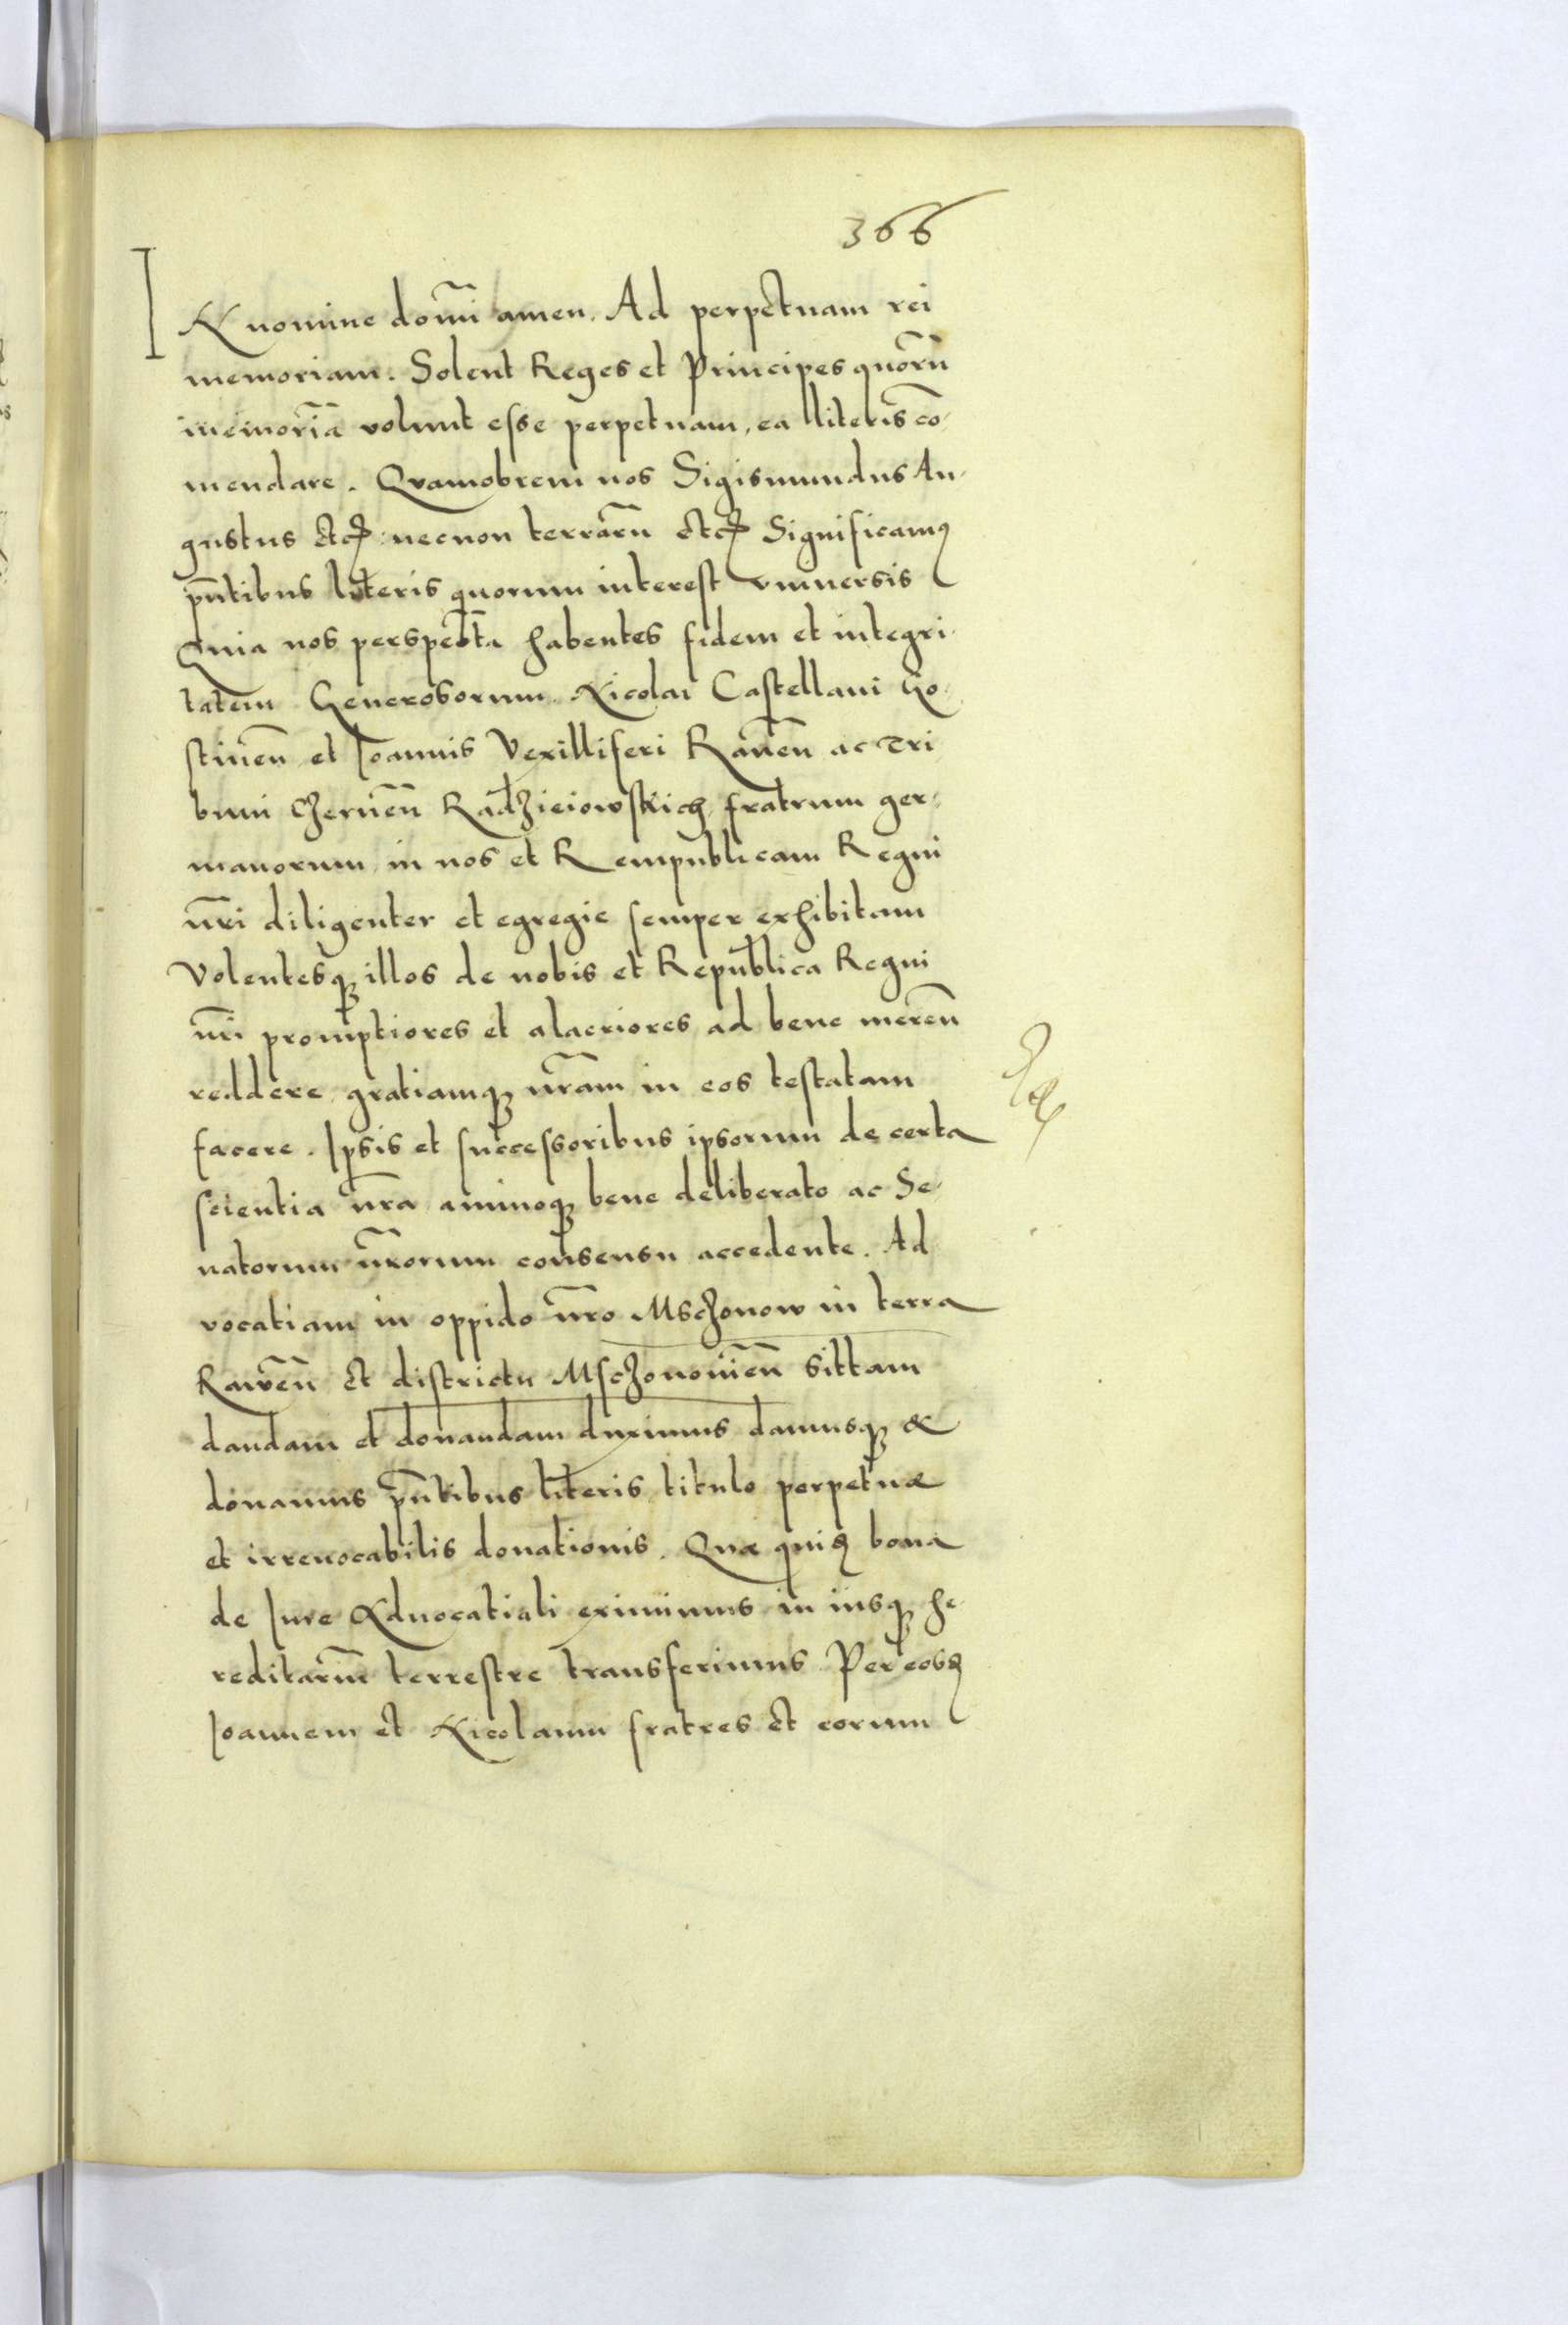 366
IN nomine domĩ amen. Ad perpetuam rei
memoriam. Solent Reges et Principes quorũ
memoriã volunt esse perpetuam, ea lliteris cõ-
mendare. Quamobrem nos Sigismundus Au-
gustus etc̃ necnon terrarũ etc̃ Significamꝰ
pñtibus literis quorum interest vniuersis
Quia nos perspecta habentes fidem et integri-
tatem Generosorum Nicolai Castellani Go-
stinen̄ et Joannis Vexilliferi Rauen̄ ac Tri-
buni Czernen̄ Radzieiowskich fratrum ger-
manorum in nos et Rempublicam Regni
nr̃i diligenter et egregie semper exhibitam
Volentesqꝫ illos de nobis et Republica Regni
nr̃i promptiores et alacriores ad bene meren̄
reddere gratiamqꝫ nr̃am in eos testatam
facere. Ipsis et successoribus ipsorum de certa
scientia nr̃a animoqꝫ bene deliberato ac Se-
natorum nr̃orum consensu accedente. Ad
vocatiam in oppido nr̃o Msczonow in terra
Rawen̄ et districtu Msczonouien̄ sittam
dandam et donandam duximus damusqꝫ &
donamus pñtibus literis titulo perpetuæ
et irreuocabilis donationis. Quæ quidẽ bona
de Iure Aduocatiali eximimus in iusqꝫ he-
reditarium terrestre transferimus. Per eosdẽ
Joannem et Nicolaum fratres et eorum